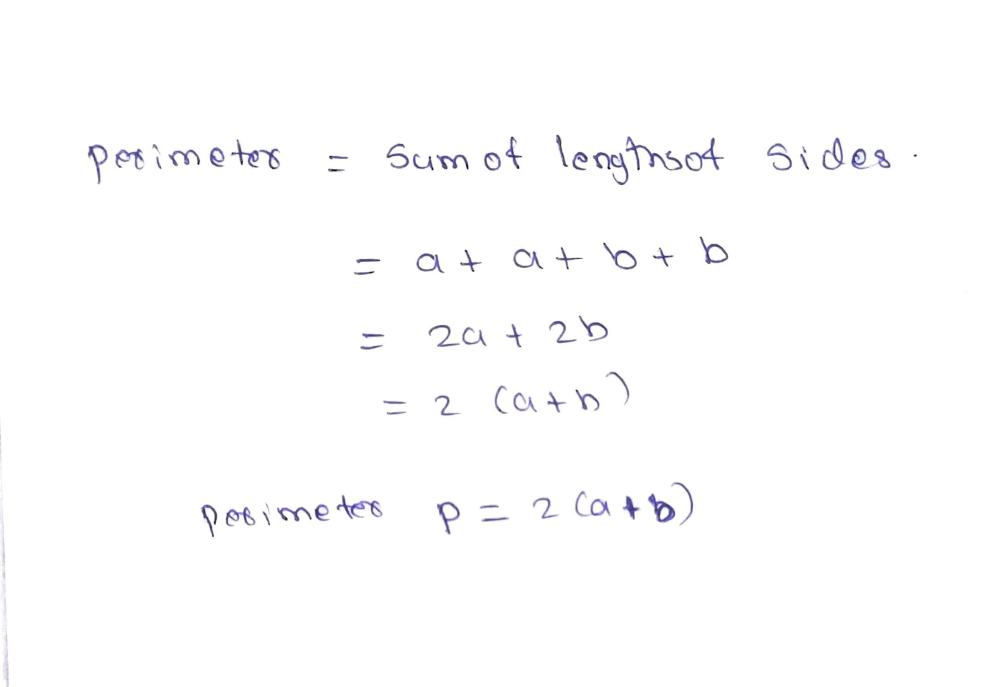 perimeter = Sum of lengths of sides.
= a + a + b + b
= 2a + 2b
= 2 (a+b)
perimeter p = 2 (a+b)